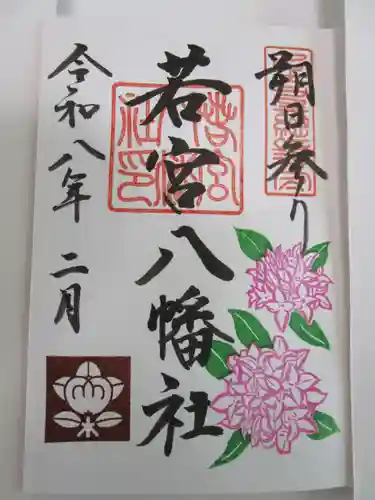 朔日参り
若宮八幡社
令和八年 二月